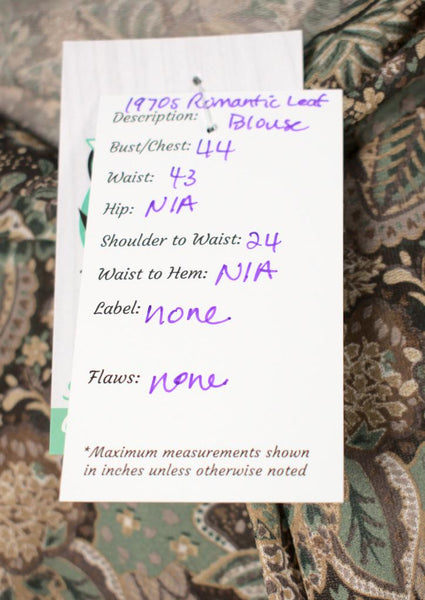 1970s Romantic Leaf
Description: Blouse
Bust/Chest: 44
Waist: 43
Hip: N/A
Shoulder to Waist: 24
Waist to Hem: N/A
Label: none
Flaws: none
*Maximum measurements shown
in inches unless otherwise noted